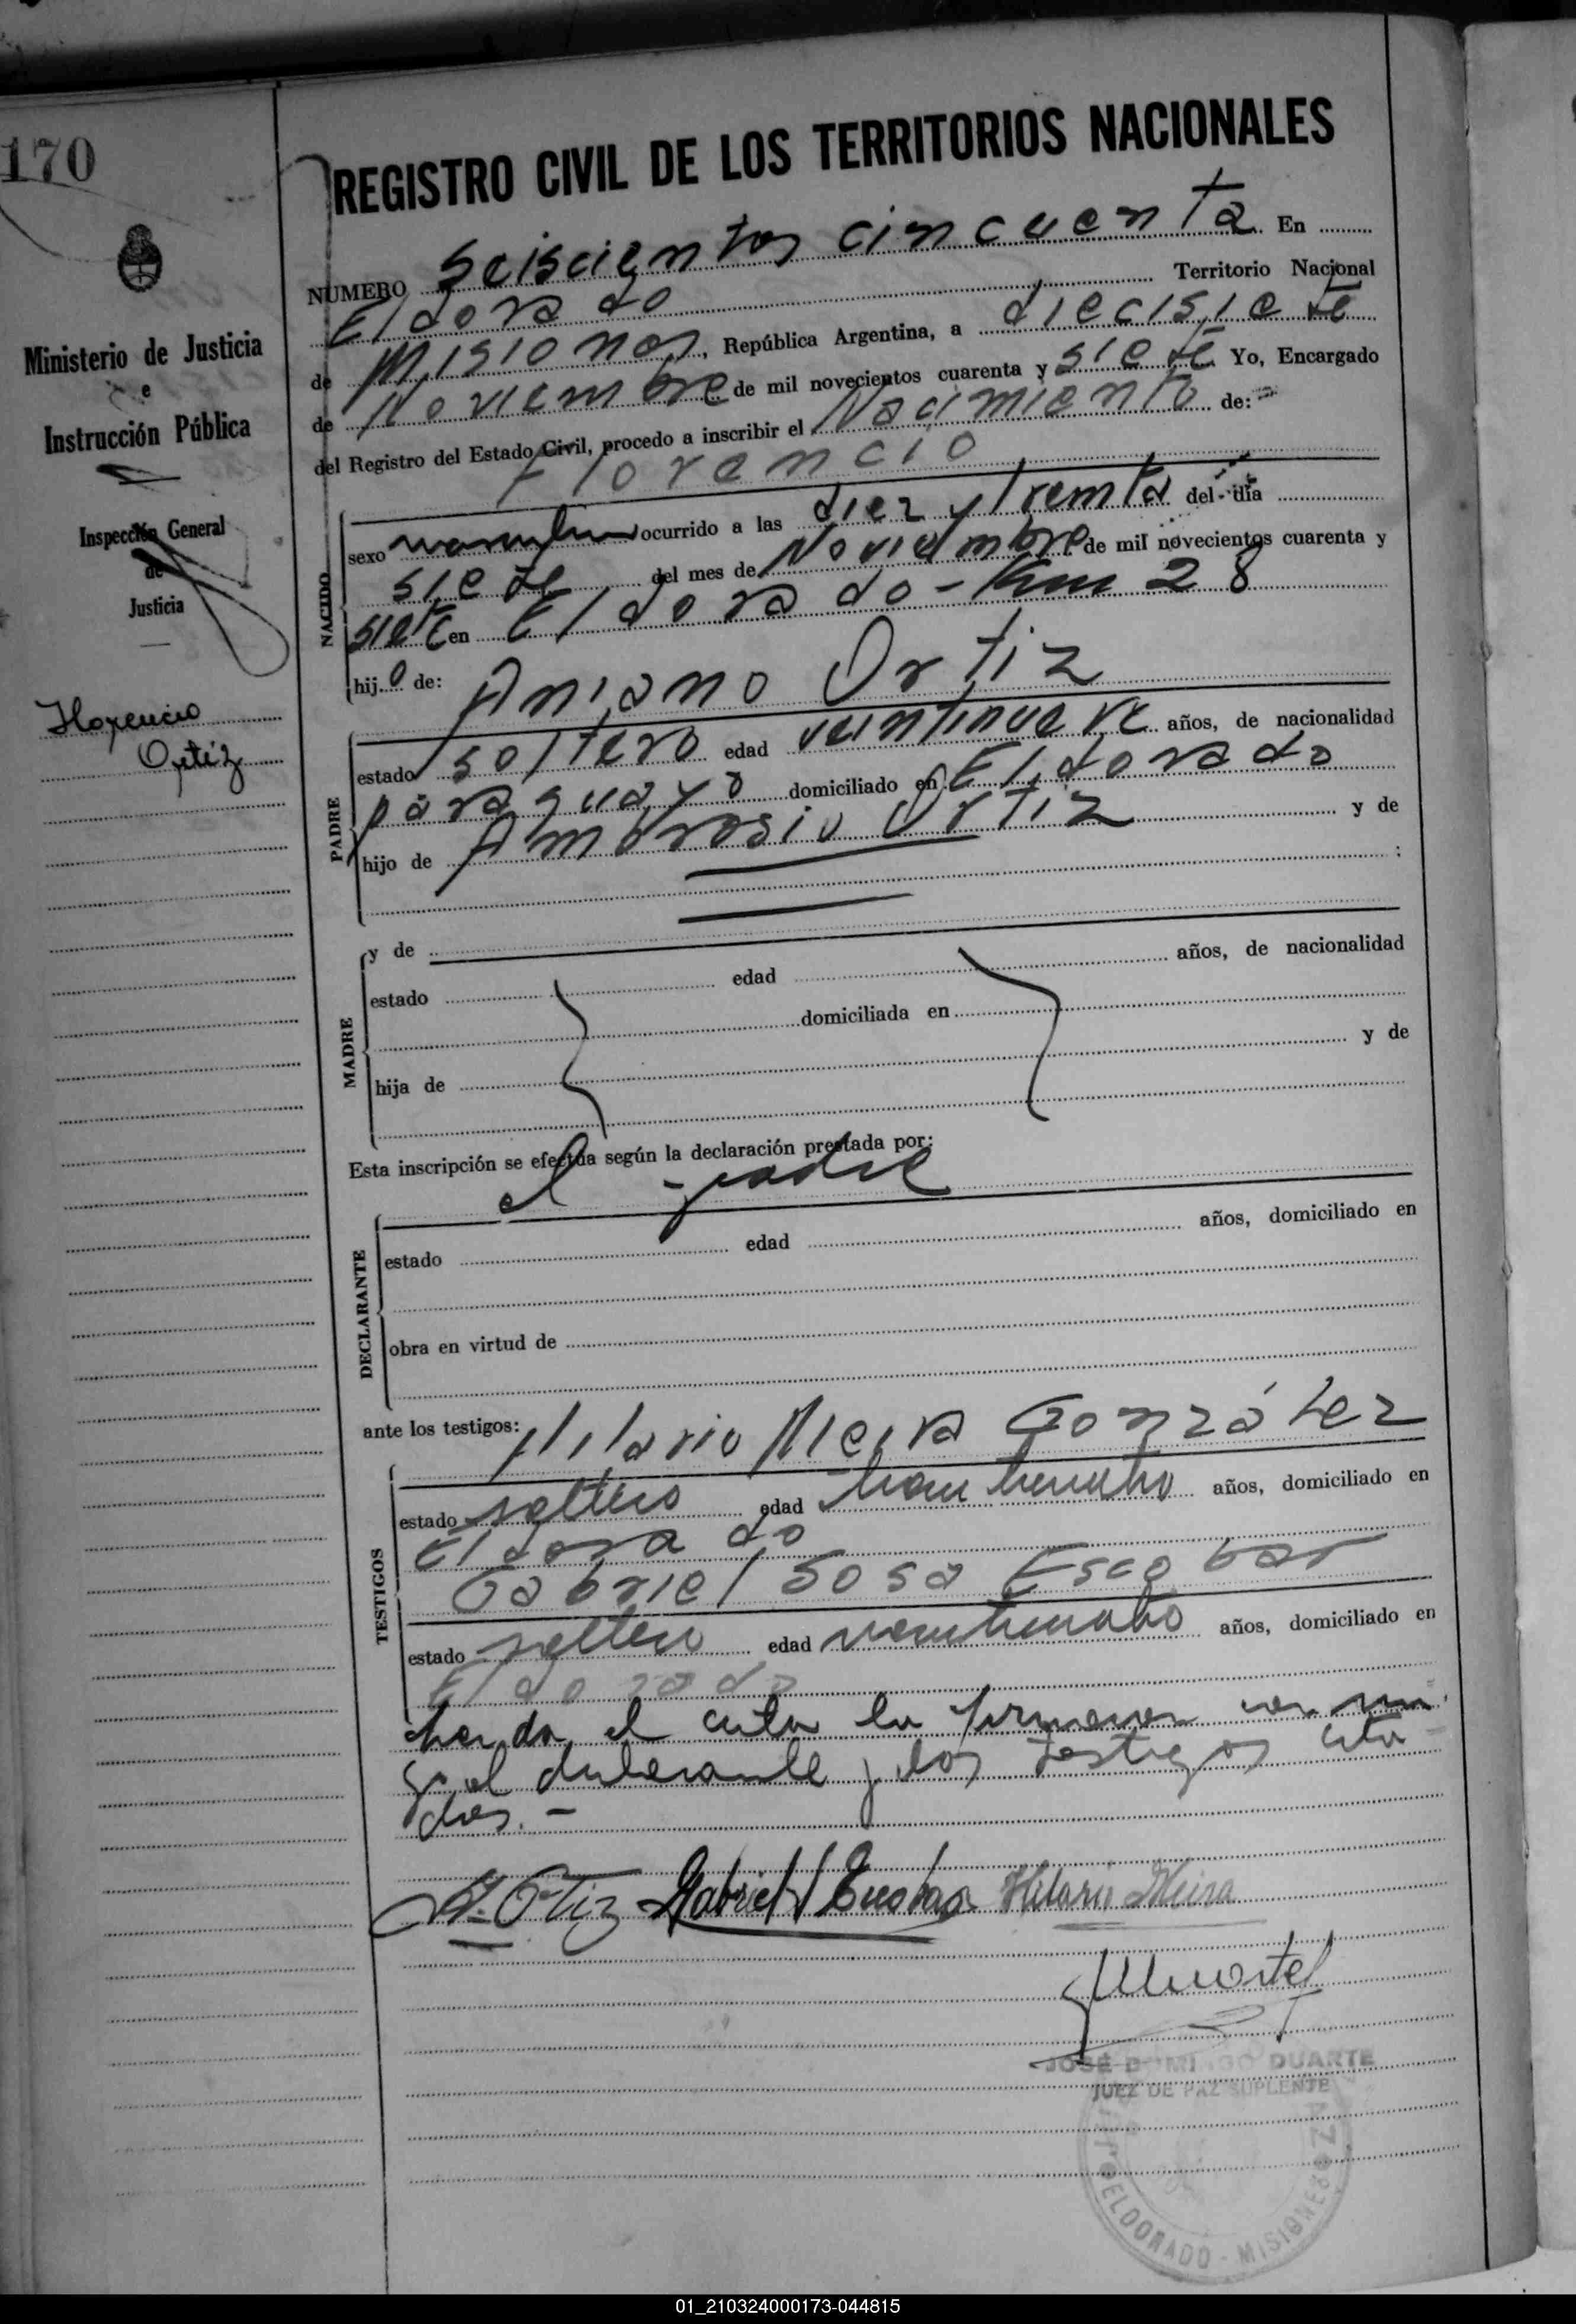 170
Ministerio de Justicia
e
Instrucción Pública
Inspección General
de
Justicia
Florencio
Ortiz
REGISTRO CIVIL DE LOS TERRITORIOS NACIONALES
NUMERO seiscientos cincuenta En
Eldorado Territorio Nacional
de Misiones, República Argentina, a diecisiete
de Noviembre de mil novecientos cuarenta y siete Yo, Encargado
del Registro del Estado Civil, procedo a inscribir el Nacimiento de:
Florencio
NACIDO
sexo masculino ocurrido a las diez y treinta del día
siete del mes de Noviembre de mil novecientos cuarenta y
siete en Eldorado - Km 28
hijo de: Aniano Ortiz
PADRE
estado soltero edad veintinueve años, de nacionalidad
paraguayo domiciliado en Eldorado
hijo de Ambrosio Ortiz y de
;
MADRE
y de
estado edad años, de nacionalidad
domiciliada en
hija de y de
Esta inscripción se efectúa según la declaración prestada por:
el padre
DECLARANTE
estado edad años, domiciliado en
obra en virtud de
ante los testigos: Hilario Neira González
TESTIGOS
estado soltero edad años, domiciliado en
Eldorado
Gabriel Sosa Escobar
estado soltero edad veintiocho años, domiciliado en
Eldorado
Leida el acta la firmaron con mi
go el declarante y los testigos cita
dos. -
A. Ortiz Gabriel Escobar Hilario Neira
JOSÉ DOMINGO DUARTE
JUEZ DE PAZ SUPLENTE
ELDORADO - MISIONES
01_210324000173-044815